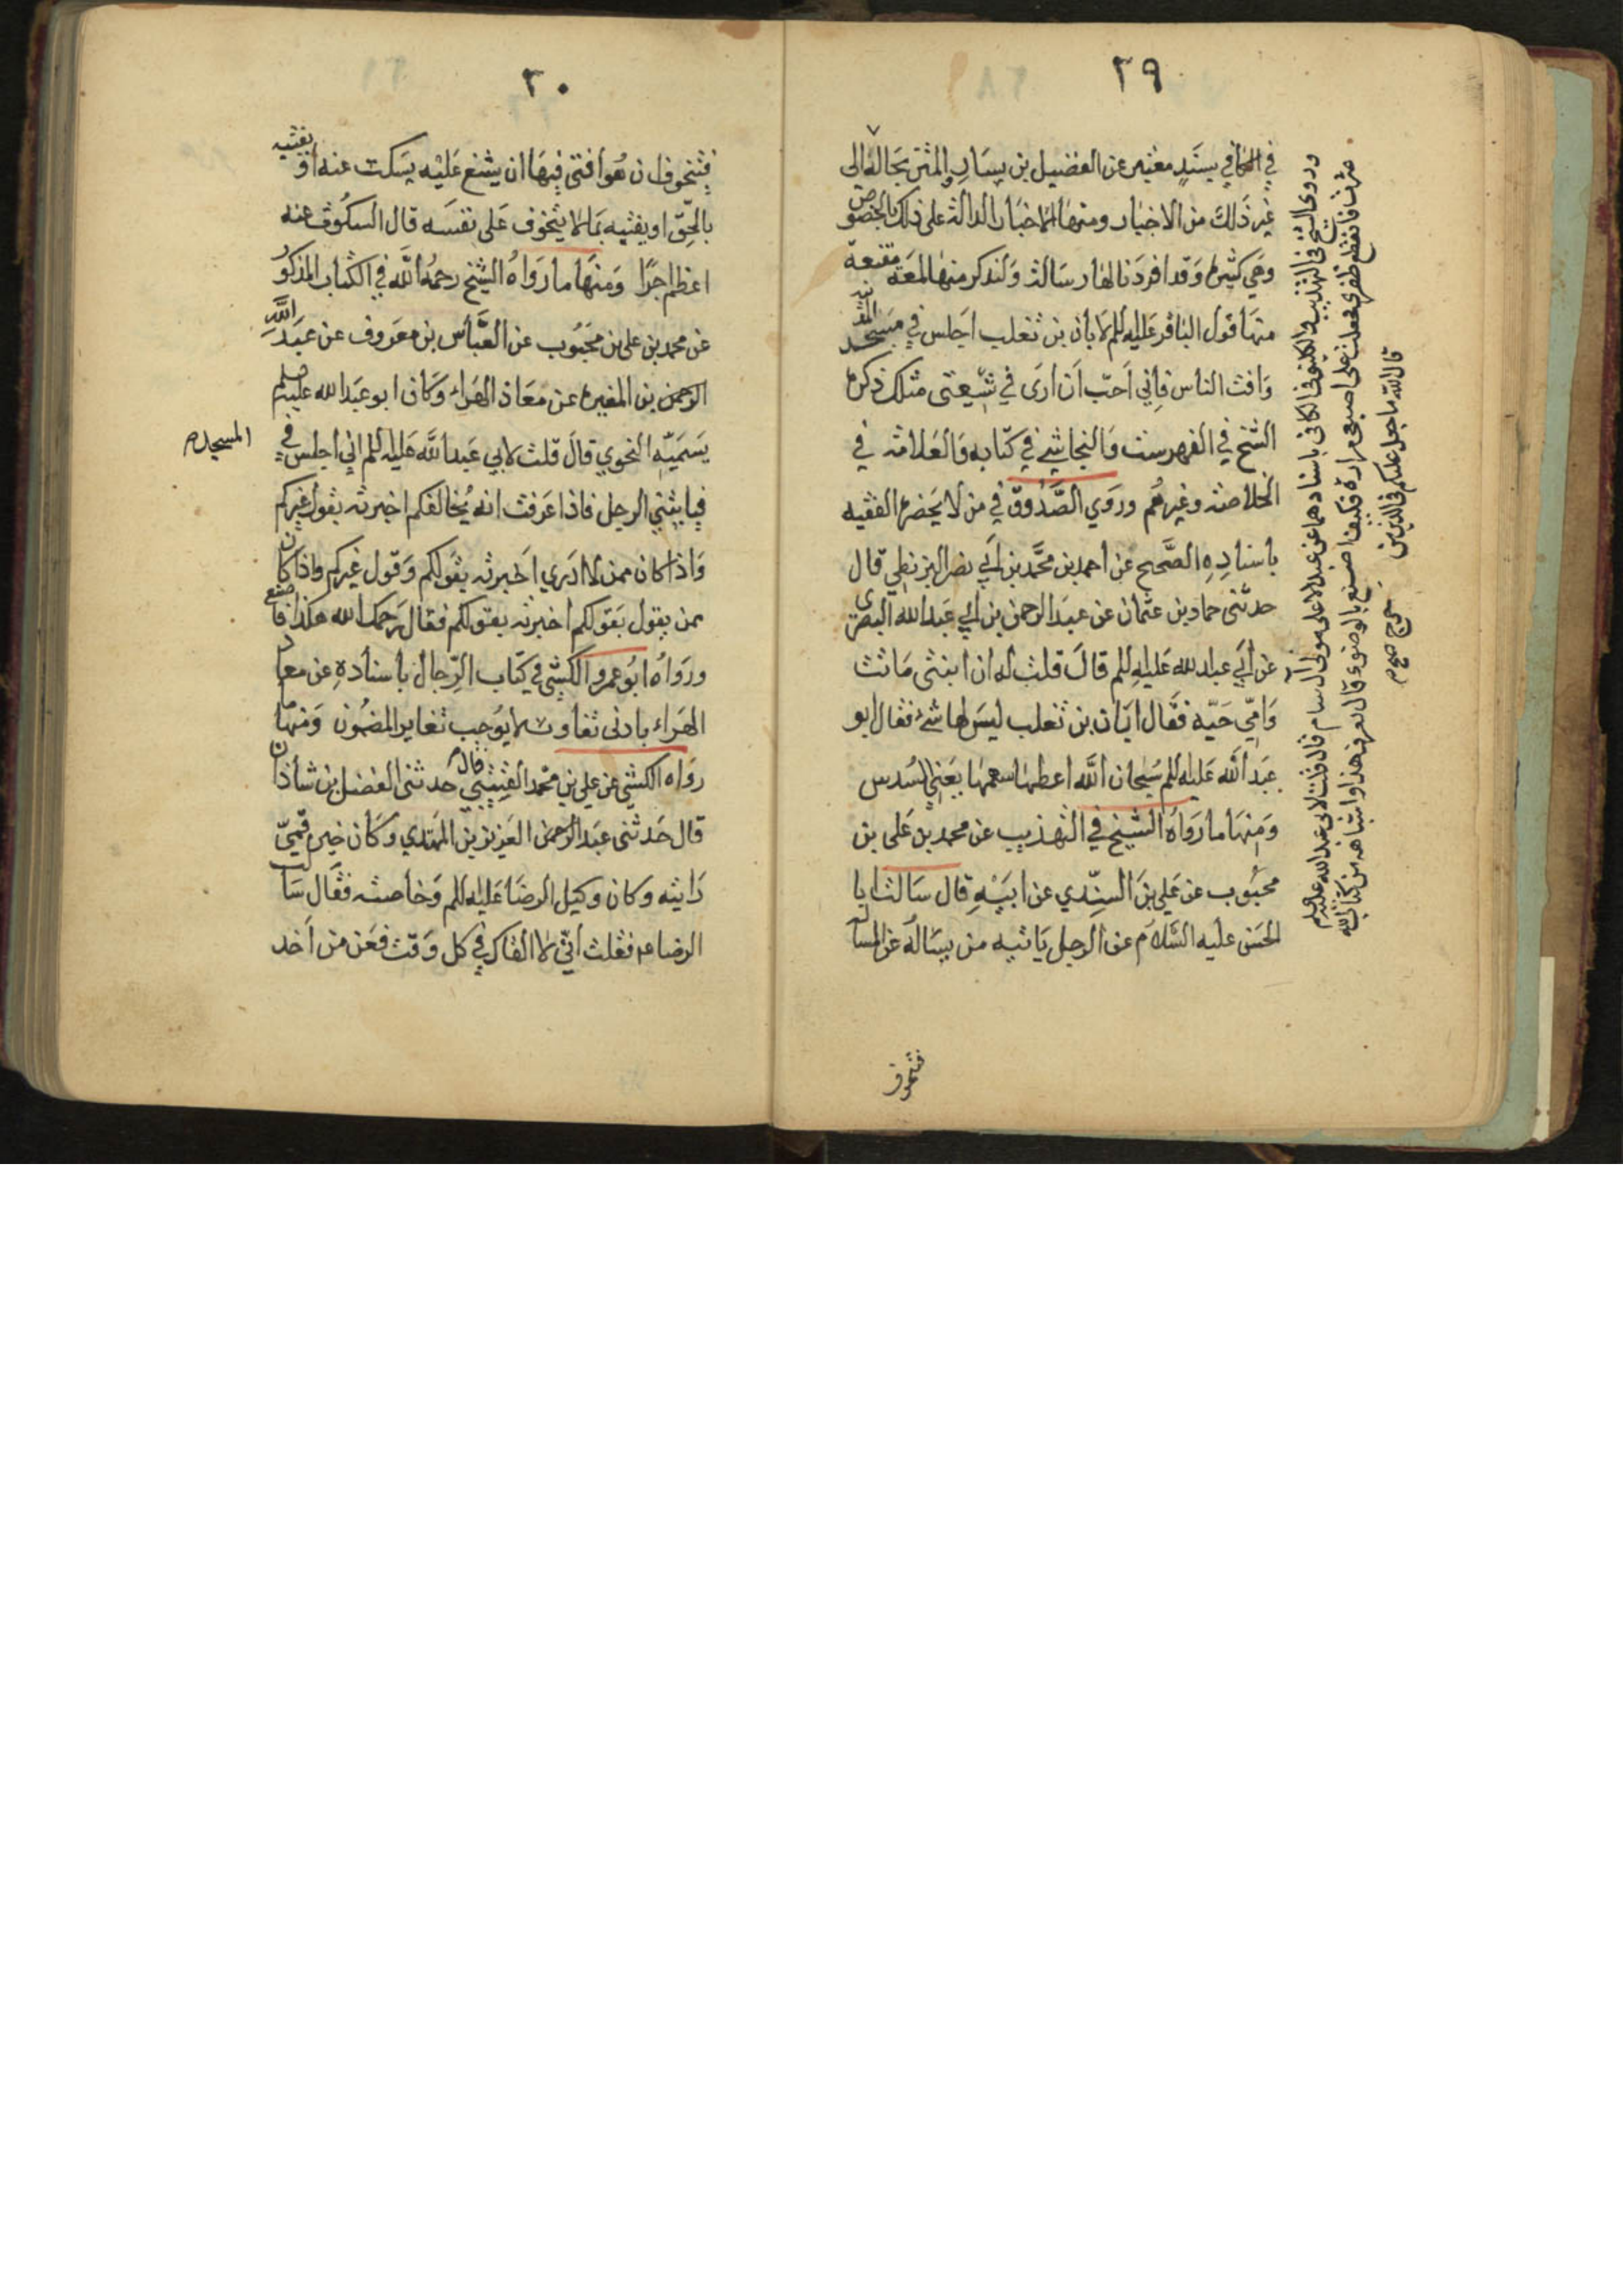 ٢٩
في الكافي بسند معتبر عن الفضيل بن يسار والمتن بحاله الى
غير ذلك من الاخبار ومنها الاخبار الدالة على ذلك بالخصوص
وهي كثيرة وقد افردنا لها رسالة ولنذكر منها لمعة مقنعة
منها قول الباقر عليه للم لابان بن تغلب اجلس في مسجد المدينة
وافت الناس فاني احب ان ارى في شيعتي مثلك ذكره
الشيخ في الفهرست والنجاشي في كتابه والعلامة في
الخلاصة وغيرهم وروي الصدوق في من لا يحضره الفقيه
باسناده الصحيح عن احمد بن محمد بن ابي نصر البزنطي قال
حدثني حماد بن عثمان عن عبد الرحمن بن ابي عبد الله البصري
عن ابي عبد الله عليه للم قال قلت له ان ابنتي ماتت
وامي حية فقال ابان بن تغلب ليس لها شئ فقال ابو
عبد الله عليه للم سبحان الله اعطها سهمها يعني السدس
ومنها ما رواه الشيخ في التهذيب عن محمد بن علي بن
محبوب عن علي بن السندي عن ابيه قال سالت ابا
الحسن عليه السلام عن الرجل ياتيه من يساله عن المسالة
فيتخوف
وروى الشيخ في التهذيب والكليني في الكافي باسنادهما عن عبد الاعلى مولى آل سام قال قلت لابي عبد الله عليه السلم
عثرت فانقطع ظفري فجعلت على اصبعي مرارة فكيف اصنع بالوضوء قال تعرف هذا واشباهه من كتاب الله
قال الله ما جعل عليكم في الدين من
حرج صح م
٣٠
فيتخوف ان هو افتى فيها ان يشنع عليه يسكت عنه او يفتيه
بالحق او يفتيه بما لا يتخوف على نفسه قال السكوت عنه
اعظم اجرا ومنها ما رواه الشيخ رحمه الله في الكتاب المذكور
عن محمد بن علي بن محبوب عن العباس بن معروف عن عبد الله
الرحمن بن المغيرة عن معاذ الهراء وكان ابو عبد الله عليه السلم
يسميه النحوي قال قلت لابي عبد الله عليه للم اني اجلس في
المسجد م
فياتيني الرجل فاذا عرفت انه يخالفكم اخبرته بقول غيركم
واذا كان ممن لا ادري اخبرته بقولكم وقول غيركم واذا كان
ممن يقول بقولكم اخبرته بقولكم فقال رحمك الله هكذا فاصنع
ورواه ابو عمرو الكشي في كتاب الرجال باسناده عن معاذ
الهراء بادنى تفاوت لا يوجب تغاير المضمون ومنها ما
رواه الكشي عن علي بن محمد القتيبي قال حدثني الفضل بن شاذان
قال حدثني عبد الرحمن العزيز بن المهتدي وكان خير قمي
رايته وكان وكيل الرضا عليه للم وخاصته فقال سالت
الرضا ع فقلت اني لا القاك في كل وقت فعن من اخذ